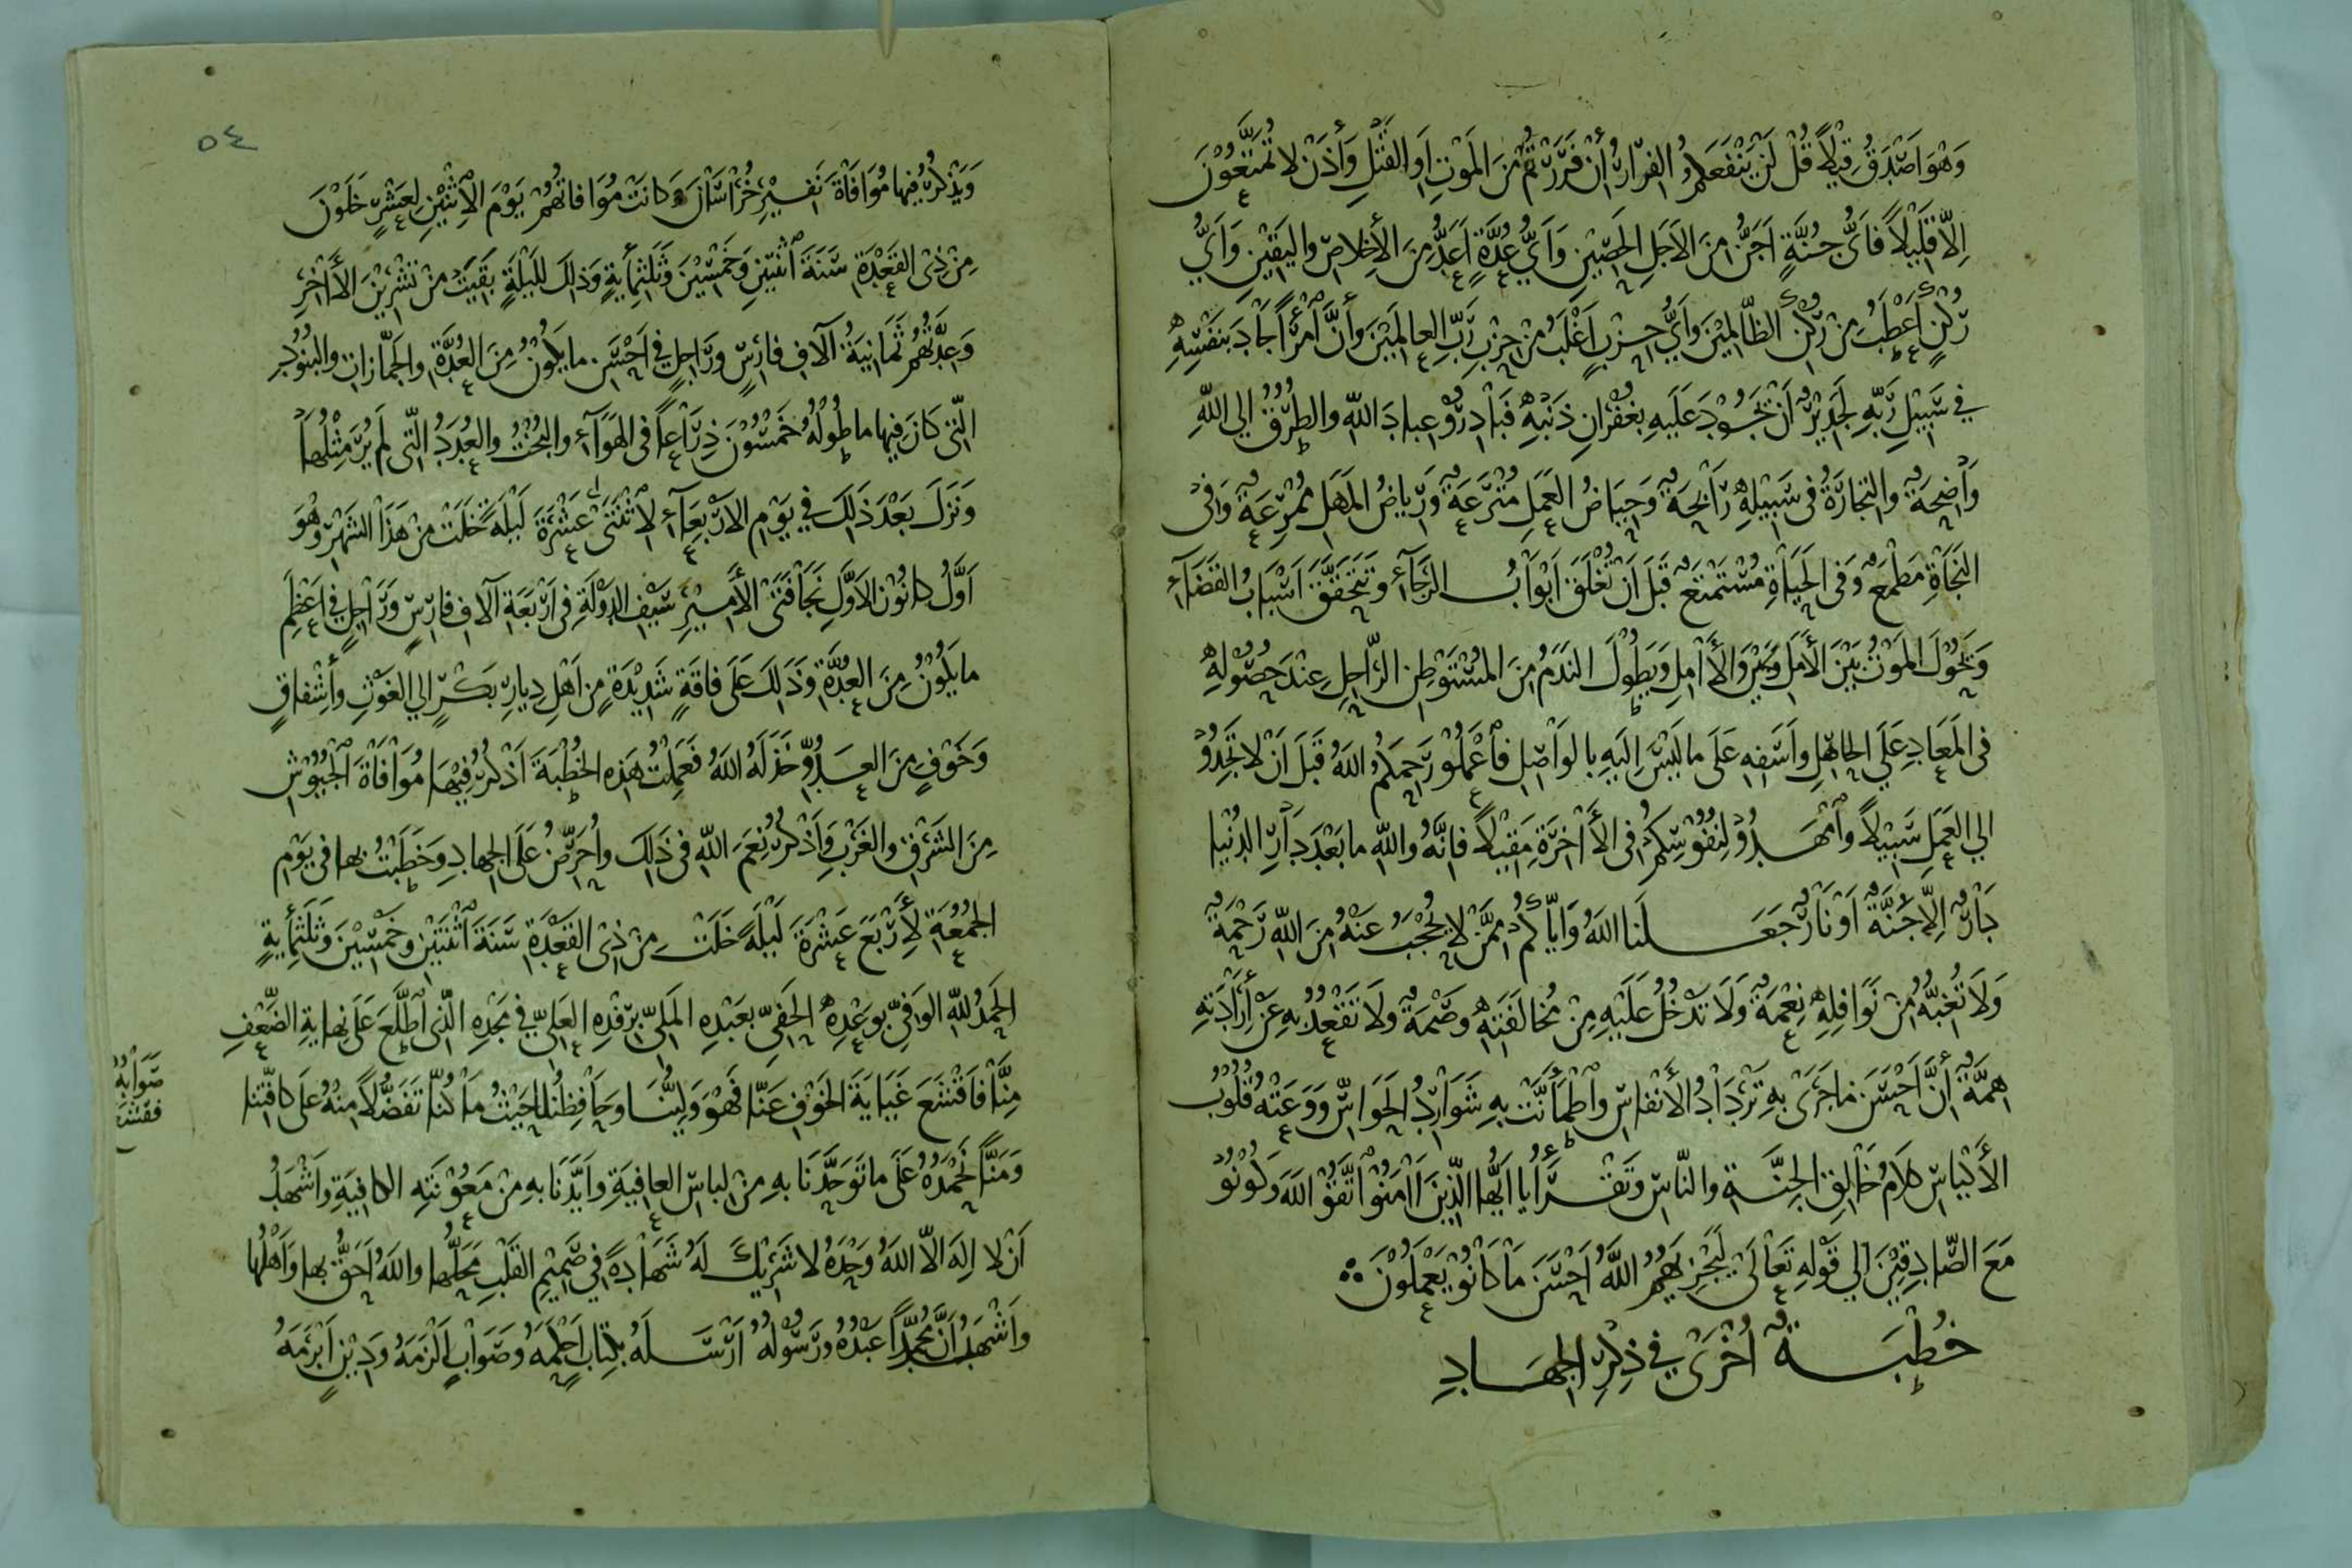 وَهْوَ اَصْدَقُ قِيْلاً قُلْ لَنْ يَنْفَعَكُمُ الفِرَارُ أِنْ فَرَرْتُمْ مِنَ المَوْتِ اَوِ القَتْلِ وَأِذَنْ لا تُمَتَّعُوْنَ
اِلاّ قَلِيْلاً فاَيُّ جُنَّةٍ اَجَنُّ مِنَ الاَجَلِ الحَصِيْنِ وَاَيُّ عُدَّةٍ اَعَدُّ مِنَ الأِخلاصِ واليَقِيْنِ وَاَيُّ
رُكْنٍ اَعْطَبُ مِنْ رُكْنِ الظّالِمِيْنَ وَاَيُّ حِزْبٍ اَغْلَبُ مِنْ حِزْبِ رَبِّ العالَمِيْنَ وَأِنَّ اَمْرَأً جَادَ بِنَفْسِهِ
في سَبِيْلِ رَبِّهِ لَجَدِيْرٌ اَنْ يَجُوْدَ عَلَيهِ بِغُفْرانِ ذَنْبِهِ فَبَادِرُوْ عِبادَ اللّهِ والطُرُقُ اِلي اللّهِ
وَاَضِحَةٌ والتِجَارَةُ في سَبِيْلِهِ رَابِحَةٌ وَحِيَاضُ العَمَلِ مُتْرَعَةٌ وَرِياضُ المَهَلِ مُمْرِعَةٌ وَفي
النَجَاةِ مَطْمَعٌ وَفي الحَيَاةِ مُسْتَمْتَعٌ قَبْلَ اَنْ تُغْلَقَ اَبْوَابُ الرَجَآءِ وتَتَحَقَّقَ اَسْبَابُ القَضَآءِ
وَيَحُوْلَ المَوْتُ بَيْنَ الأَمَلِ وَبَيْنَ الأَامِلِ وَيَطُوْلَ النَدَمُ مِنَ المُسْتَوْطِنِ الرَّاحِلِ عِنْدَ حُصُوْلِهِ
في المَعَادِ عَلَي الجاهِلِ وَاَسَفِهِ عَلَى ما لَيْسَ اِلَيهِ بِالوَاصِلِ فاَعْمَلُوْ رَحِمَكُمُ اللهُ قَبْلَ اَنْ لا تَجِدُوْ
اِلي العَمَلِ سَبِيْلاً وَاَمْهَدُوْ لِنُفُوْسِكُمْ في الأَاخِرَةِ مَقِيْلاً فاِنَّهُ واللّهِ ما بَعْدَ دَارِ الدُنْيا
دَارٌ اِلاَّ جَنَّةٌ اَوْ نَارٌ جَعَلَنَا اللهُ وَاِيَّاكُمْ مِمَّنْ لا يُحْجَبُ عَنْهُ مِنَ اللّهِ رَحْمَةٌ
وَلَا تُغِبُّهُ مِنْ نَوَافِلِهِ نِعْمَةٌ وَلَا تَدْخُلُ عَلَيْهِ مِنْ مُخالَفَتِهِ وَصْمَةٌ وَلَا تَقْعُدُ بِهِ عَنْ أِرَادَتِهِ
هِمَّةٌ أِنَّ اَحْسَنَ مَا جَرَى بِهِ تَرْدَادُ الأَنْفَاسِ وَاَطْمَأَنَّتْ بِهِ شَوَارِدُ الحَوَاسِّ وَوَعَتْهُ قُلُوْبُ
الأَكْيَاسِ كَلَامُ خَالِقِ الجِنَّةِ والنّاسِ وَتَقْرَأُ يا اَيُّها الّذِيْنَ اَامَنُوْ اَتَّقُوْ اللهَ وَكُوْنُوْ
مَعَ الصّادِقِيْنَ اِلي قَوْلِهِ تَعَالَى لِيَجْزِيَهُمُ اللهُ اَحْسَنَ مَا كَانُوْ يَعْمَلُوْنَ
خُطْبَةٌ اُخْرَى في ذِكْرِ الجِهَادِ
٥٤
وَيَذْكُرُ فِيْها مُوَافَاةَ نَفِيْرِ خُرَاسَانَ وَكانَتْ مُوَافاتُهُمْ يَوْمَ الأِثْنَيْنِ لِعَشْرٍ خَلَوْنَ
مِنْ ذِي القَعْدَةِ سَنَةَ اَثْنَتَيْنِ وَخَمْسِيْنَ وَثَلَثِمأيةٍ وَذلِكَ لِلَيْلَةٍ بَقِيَتْ مِنْ تِشْرِيْنَ الأَاخِرِ
وَعِدَّتُهُمْ ثَمَانِيَةُ آلافِ فارِسٍ وَرَاجِلٍ في اَحْسَنِ ما يَكُوْنُ مِنَ العُدَّةِ والجَمَّازاتِ والبُنُوْدِ
الّتي كانَ فِيها ما طُوْلُهُ خَمْسُوْنَ ذِرَاعاً في الهَوَآءِ والبُخْتُ والعُدَدُ الّتي لَم يُرَ مِثْلُهَا
وَنَزَلَ بَعْدَ ذَلِكَ في يَوْمِ الاَرْبِعَآءِ لِاَثْنَتَيْ عَشْرَةَ لَيْلَةً خَلَتْ مِنْ هَذَا الشَهْرِ وَهُوَ
اَوَّلُ كانُوْنَ الاَوَّلِ نَجَا فَتَى الأَمِيْرِ سَيْفِ الدَوْلَةِ في اَرْبَعَةِ آلافِ فارِسٍ وَرَاجِلٍ في اَعْظَمِ
ما يَكُوْنُ مِنَ العُدَّةِ وَذَلِكَ عَلَى فاقَةٍ شَدِيْدَةٍ مِنْ اَهْلِ دِيارِ بَكْرٍ اِلي الغَوْثِ وأِشْفاقٍ
وَخَوْفٍ مِنَ العَدُوِّ خَذَلَهُ اللهُ فَعَمِلْتُ هَذِهِ الخُطْبَةَ اَذْكُرُ فِيْهَا مُوَافَاةَ الجُيُوْشِ
مِنَ الشَرْقِ والغَرْبِ وَاَذْكُرُ نِعَمَ اللّهِ في ذَلِكَ وأُحَرِّضُ عَلَى الجِهادِ وَخَطَبْتُ بِها في يَوْمِ
الجُمُعَةِ لأَِرْبَعَ عَشْرَةَ لَيْلَةً خَلَتْ مِنْ ذِي القَعْدَةِ سَنَةَ اَثْنَتَيْنِ وَخَمْسِيْنَ وَثَلَثِمأيةٍ
الحَمْدُ للّهِ الوَافِي بِوَعْدِهِ الحَفِيِّ بِعَبْدِهِ المَلِيِّ بِرِفْدِهِ العَلِيِّ في مَجْدِهِ الّذِي اَطَّلَعَ عَلَى نِهايةِ الضَّعْفِ
مِنَّا فَاقْتَشَعَ غَيَايَةَ الخَوْفِ عَنّا فَهْوَ وَلِيُّنَا وَحَافِظُنا حَيْثُ مَا كُنّا تَفَضُّلاً مِنْهُ عَلَى كافَّتِنا
صَوَابُهُ
فقشع
وَمَنًّا نَحْمَدُهُ عَلَى ما تَوَحَّدَنَا بِهِ مِنْ لِباسِ العافِيَةِ وَاَيَّدَنَا بِهِ مِنْ مَعُوْنَتِهِ الكافِيَةِ وَاَشْهَدُ
اَنْ لا اِلَهَ اِلاّ اللهُ وَحْدَهُ لا شَرِيْكَ لَهُ شَهَادَةً في صَمِيْمِ القَلْبِ مَحَلُّها واللهُ اَحَقُّ بِها وَاَهْلُها
وَاَشْهَدُ اَنَّ مُحَمَّداً عَبْدُهُ وَرَسُوْلُهُ اَرْسَلَهُ بِكِتَابٍ اَحْكَمَهُ وَصَوَابٍ اَلْزَمَهُ وَدِيْنٍ اَبْرَمَهُ